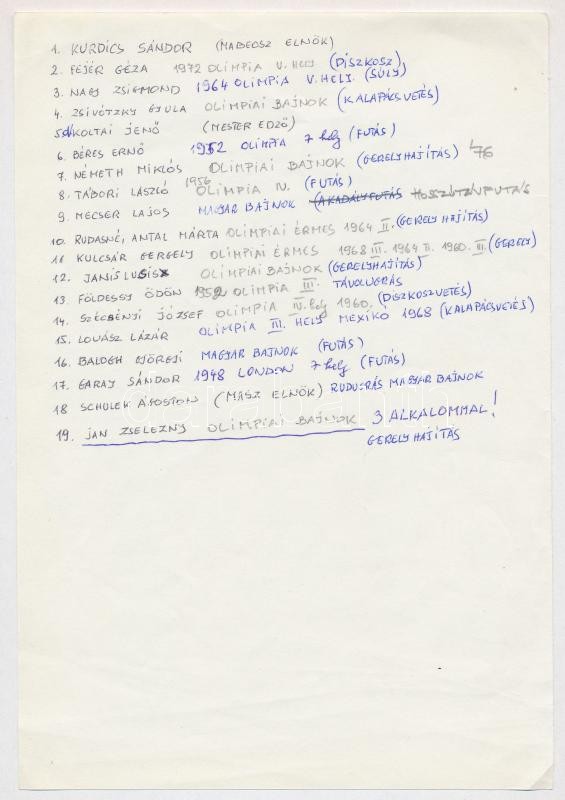 1. KURDICS SÁNDOR (MABEOSZ ELNÖK)
2. FEJÉR GÉZA 1972 OLIMPIA V. HELY (DISZKOSZ)
3. NAGY ZSIGMOND 1964 OLIMPIA V. HELY. (SÚLY)
4. ZSIVÓTZKY GYULA OLIMPIAI BAJNOK (KALAPÁCSVETÉS)
5. KOLTAI JENŐ (MESTER EDZŐ)
6. BÉRES ERNŐ 1952 OLIMPIA 7 hely (FUTÁS)
7. NÉMETH MIKLÓS OLIMPIAI BAJNOK (GERELYHAJÍTÁS) '76
8. TÁBORI LÁSZLÓ 1956 OLIMPIA IV. (FUTÁS)
9. MECSER LAJOS MAGYAR BAJNOK (AKADÁLYFUTÁS HOSSZÚTÁVFUTÁS
10. RUDASNÉ, ANTAL MÁRTA OLIMPIAI ÉRMES 1964 II. (GERELYHAJÍTÁS)
11 KULCSÁR GERGELY OLIMPIAI ÉRMES 1968 III. 1964 II. 1960. III. (GERELY)
12. JANIS LUSIS OLIMPIAI BAJNOK (GERELYHAJÍTÁS)
13. FÖLDESSY ÖDÖN 1952 OLIMPIA III. TÁVOLUGRÁS
14. SZÉCSÉNYI JÓZSEF OLIMPIA IV. hely 1960. (DISZKOSZVETÉS)
15. LOVÁSZ LÁZÁR OLIMPIA III. HELY MEXIKÓ 1968 (KALAPÁCSVETÉS)
16. BALOGH GYÖRGYI MAGYAR BAJNOK (FUTÁS)
17. GARAY SÁNDOR 1948 LONDON 7 hely (FUTÁS)
18 SCHULEK ÁGOSTON (MASZ ELNÖK) RUDUGRÁS MAGYAR BAJNOK
19. JAN ZSELEZNY OLIMPIAI BAJNOK 3 ALKALOMMAL!
GERELYHAJÍTÁS